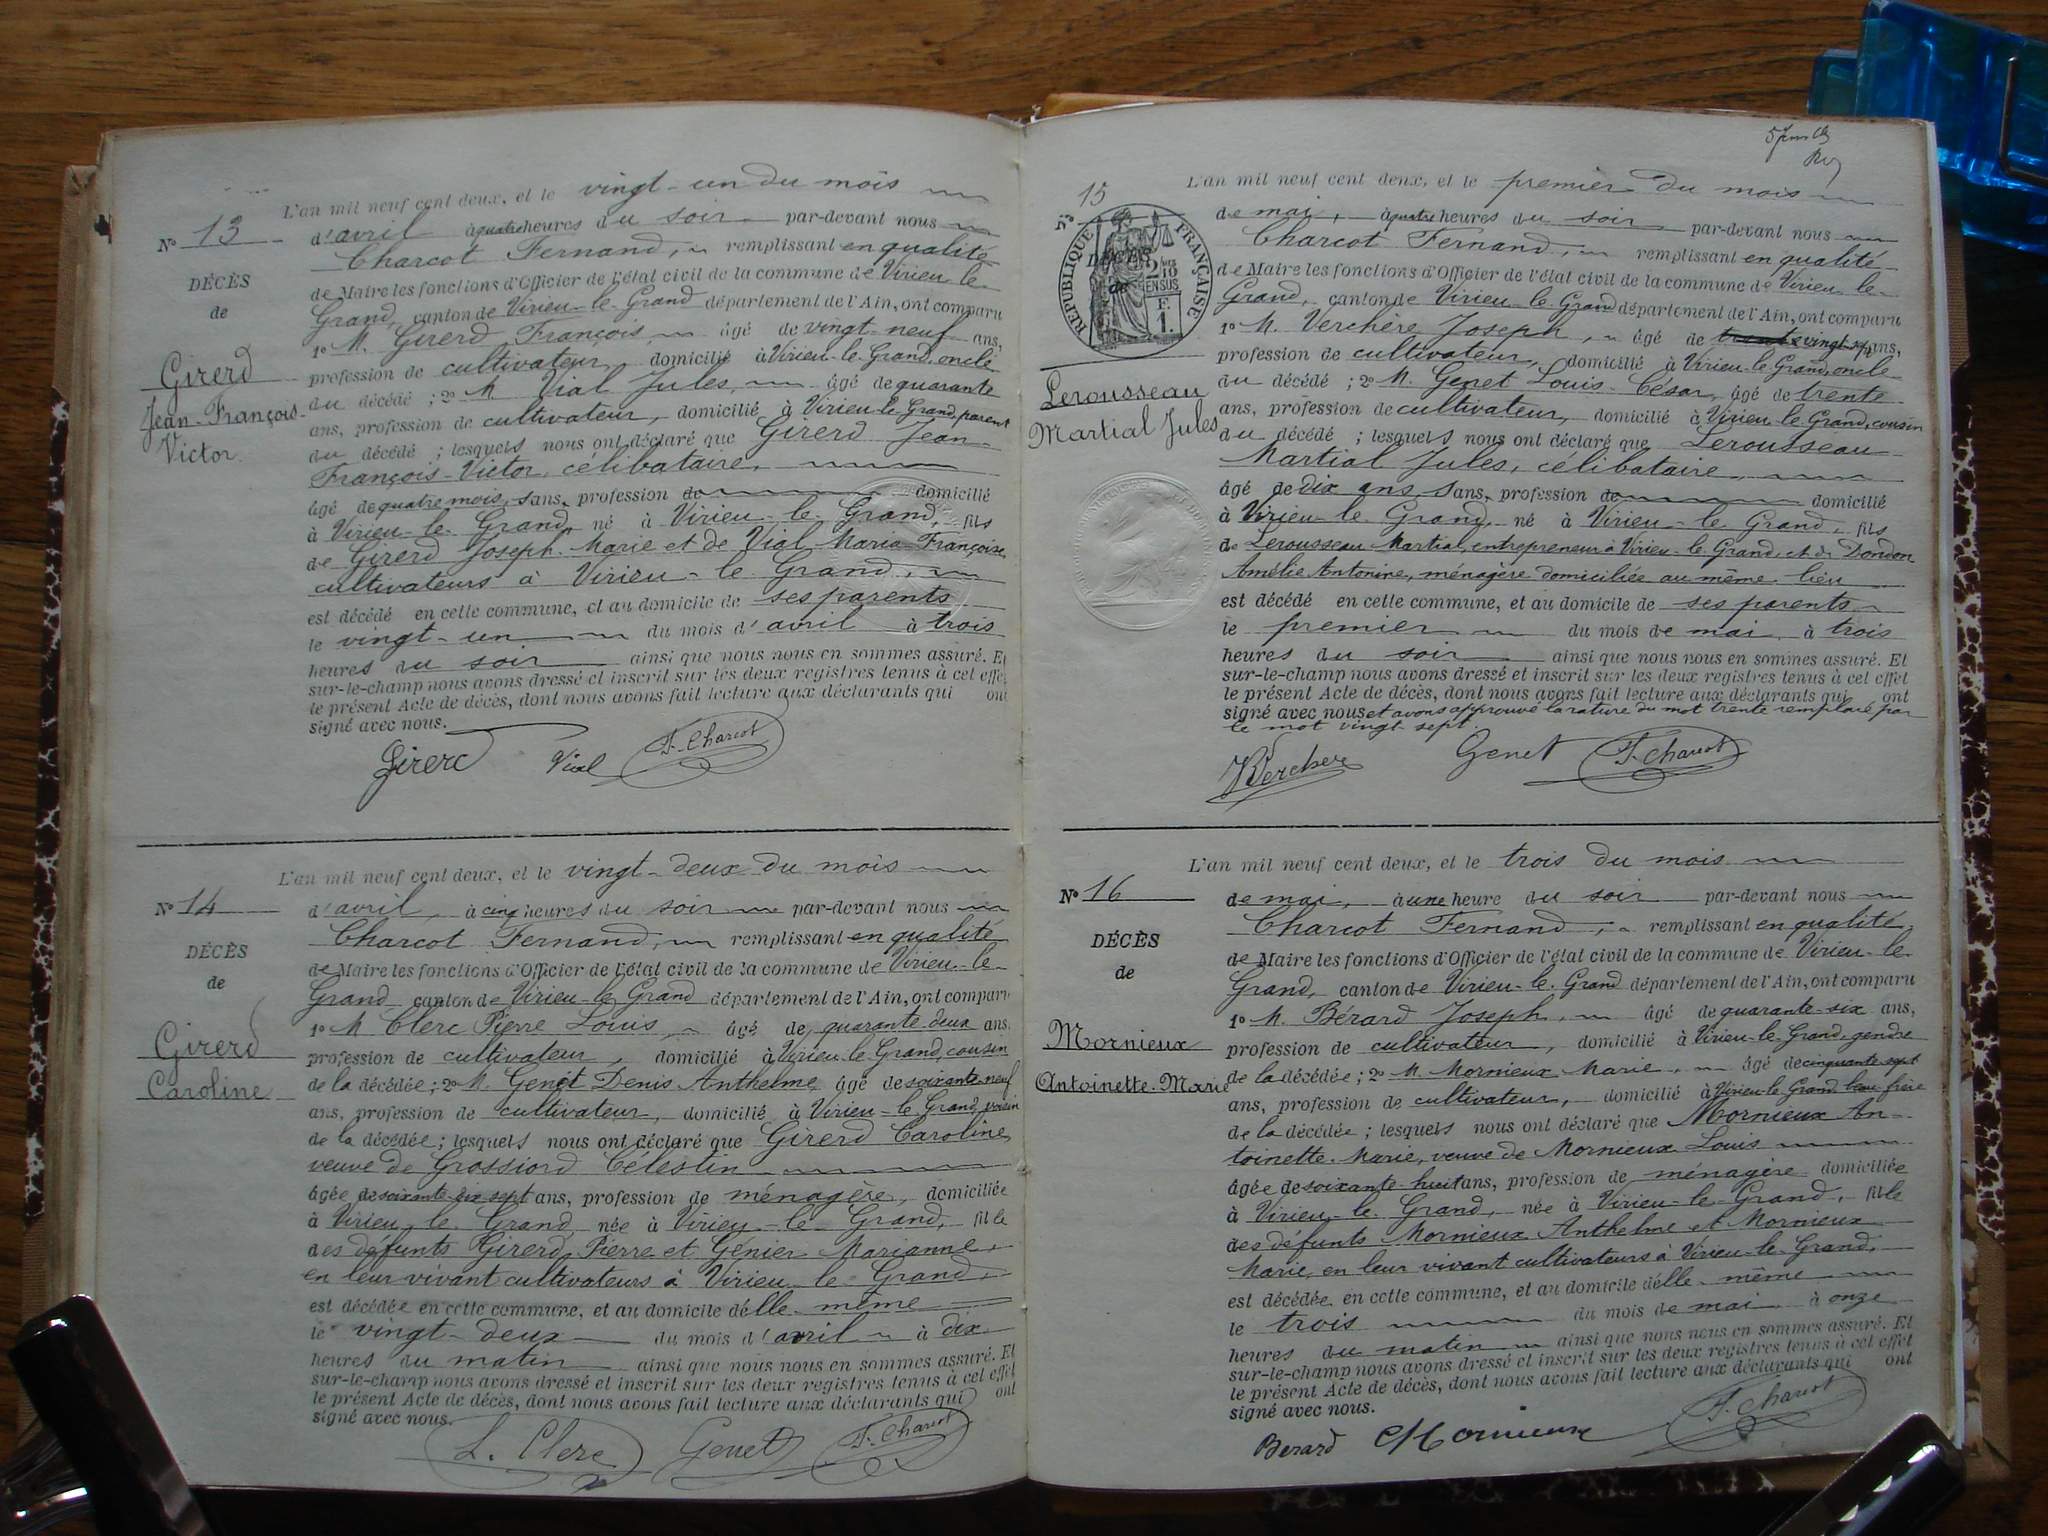 L'an mil neuf cent deux, et le vingt-un du mois
N° 13
d'avril à quatre heures du soir par-devant nous
Charcot Fernand, remplissant en qualité
DÉCÈS
de Maire les fonctions d'Officier de l'état civil de la commune de Virieu-le-
de
Grand, canton de Virieu-le-Grand département de l'Ain, ont comparu
1° M. Girerd François, âgé de vingt-neuf ans,
Girerd
profession de cultivateur, domicilié à Virieu-le-Grand, oncle
Jean-François-
du décédé ; 2° M. Vial Jules, âgé de quarante
Victor
ans, profession de cultivateur, domicilié à Virieu-le-Grand, parent
du décédé ; lesquels nous ont déclaré que Girerd Jean-
François-Victor, célibataire,
âgé de quatre mois, sans, profession de domicilié
à Virieu-le-Grand, né à Virieu-le-Grand, fils
de Girerd Joseph-Marie et de Vial Maria Françoise,
cultivateurs à Virieu-le-Grand,
est décédé en cette commune, et au domicile de ses parents
le vingt-un du mois d'avril à trois
heures du soir ainsi que nous nous en sommes assuré. Et
sur-le-champ nous avons dressé et inscrit sur les deux registres tenus à cet effet
le présent Acte de décès, dont nous avons fait lecture aux déclarants qui ont
signé avec nous.
Girerd Vial F. Charcot
L'an mil neuf cent deux, et le vingt-deux du mois
N° 14
d'avril, à cinq heures du soir par-devant nous
Charcot Fernand, remplissant en qualité
DÉCÈS
de Maire les fonctions d'Officier de l'état civil de la commune de Virieu-le-
de
Grand canton de Virieu-le-Grand département de l'Ain, ont comparu
1° M Clerc Pierre Louis, âgé de quarante-deux ans,
Girerd
profession de cultivateur, domicilié à Virieu-le-Grand, cousin
Caroline
de la décédée ; 2° M. Genet Denis Anthelme, âgé de soixante-neuf
ans, profession de cultivateur, domicilié à Virieu-le-Grand, voisin
de la décédée ; lesquels nous ont déclaré que Girerd Caroline,
veuve de Grossiord Célestin
âgée de soixante-dix-sept ans, profession de ménagère, domiciliée
à Virieu-le-Grand née à Virieu-le-Grand, fille
des défunts Girerd Pierre et Génier Marianne,
en leur vivant cultivateurs à Virieu-le-Grand,
est décédée en cette commune, et au domicile d'elle-même
le vingt-deux du mois d'avril à dix
heures du matin ainsi que nous nous en sommes assuré. Et
sur-le-champ nous avons dressé et inscrit sur les deux registres tenus à cet effet
le présent Acte de décès, dont nous avons fait lecture aux déclarants qui ont
signé avec nous.
L. Clerc Genet F. Charcot
L'an mil neuf cent deux, et le premier du mois
N° 15
RÉPUBLIQUE FRANÇAISE
2/10 EN SUS
F. 1.
DÉCÈS
de
de mai, à quatre heures du soir par-devant nous
Charcot Fernand, remplissant en qualité
de Maire les fonctions d'Officier de l'état civil de la commune de Virieu-le-
Grand, canton de Virieu-le-Grand département de l'Ain, ont comparu
1° M. Verchère Joseph, âgé de trente vingt-sept ans,
profession de cultivateur, domicilié à Virieu-le-Grand, oncle
Lerousseau
du décédé ; 2° M. Genet Louis-César, âgé de trente
Martial Jules
ans, profession de cultivateur, domicilié à Virieu-le-Grand, cousin
du décédé ; lesquels nous ont déclaré que Lerousseau
Martial Jules, célibataire,
âgé de dix ans, sans, profession de domicilié
à Virieu-le-Grand, né à Virieu-le-Grand, fils
de Lerousseau Martial, entrepreneur à Virieu-le-Grand, et de Dondon
Amélie Antonine, ménagère domiciliée au même lieu
est décédé en cette commune, et au domicile de ses parents
le premier du mois de mai à trois
heures du soir ainsi que nous nous en sommes assuré. Et
sur-le-champ nous avons dressé et inscrit sur les deux registres tenus à cet effet
le présent Acte de décès, dont nous avons fait lecture aux déclarants qui ont
signé avec nous et avons approuvé la rature du mot trente remplacé par
le mot vingt-sept.
J Verchère Genet F. Charcot
L'an mil neuf cent deux, et le trois du mois
N° 16
de mai, à une heure du soir par-devant nous
Charcot Fernand, remplissant en qualité
DÉCÈS
de Maire les fonctions d'Officier de l'état civil de la commune de Virieu-le-
de
Grand, canton de Virieu-le-Grand département de l'Ain, ont comparu
1° M. Bérard Joseph, âgé de quarante-six ans,
Mornieux
profession de cultivateur, domicilié à Virieu-le-Grand, gendre
Antoinette-Marie
de la décédée ; 2° M. Mornieux Marie, âgé de cinquante-sept
ans, profession de cultivateur, domicilié à Virieu-le-Grand, beau-frère
de la décédée ; lesquels nous ont déclaré que Mornieux An-
toinette-Marie, veuve de Mornieux Louis
âgée de soixante-huit ans, profession de ménagère domiciliée
à Virieu-le-Grand, née à Virieu-le-Grand, fille
des défunts Mornieux Anthelme et Mornieux
Marie, en leur vivant cultivateurs à Virieu-le-Grand,
est décédée en cette commune, et au domicile d'elle-même
le trois du mois de mai à onze
heures du matin ainsi que nous nous en sommes assuré. Et
sur-le-champ nous avons dressé et inscrit sur les deux registres tenus à cet effet
le présent Acte de décès, dont nous avons fait lecture aux déclarants qui ont
signé avec nous.
Berard Mornieux F. Charcot